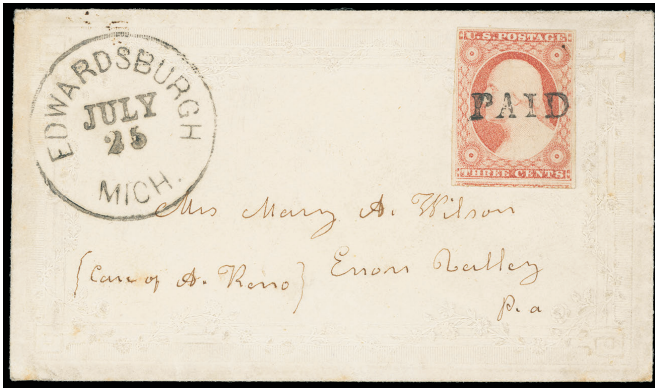 EDWARDSBURGH
JULY
25
MICH.
U.S. POSTAGE
PAID
THREE CENTS
Mrs Mary A. Wilson
{Care of A. Reno} Enon Valley
Pa